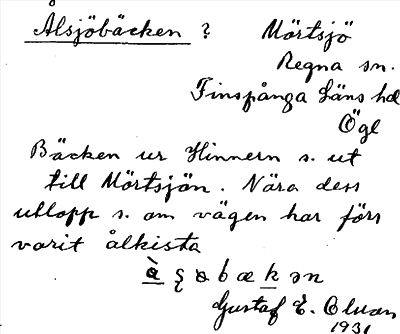 Ålsjöbäcken ? Mörtsjö
Regna sn.
Finspånga Läns hd
Ögl
Bäcken ur Hinnern s. ut
till Mörtsjön. Nära dess
utlopp s. om vägen har förr
varit ålkista
Gustaf E.
1931